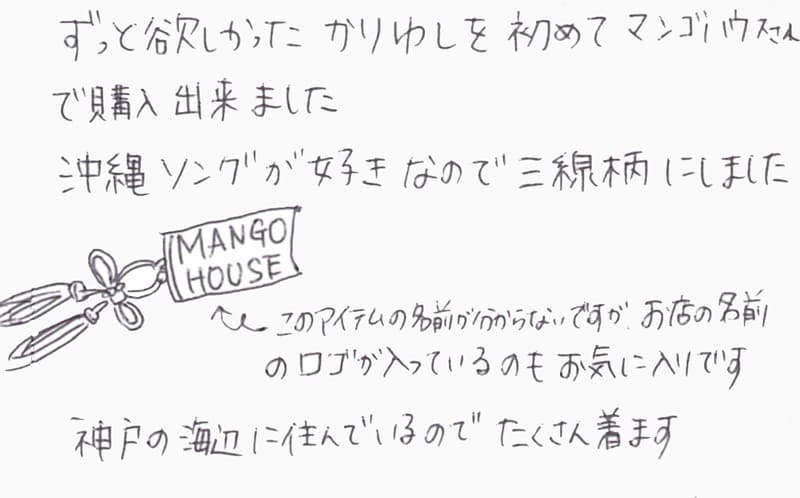 ずっと欲しかった かりゆしを 初めて マンゴハウスさん
で購入 出来ました
沖縄 ソングが 好き なので 三線柄 にしました
MANGO
HOUSE
このアイテムの名前が分からないですが お店の名前
のロゴが入っているのも お気に入りです
神戸の 海辺 に住んでいるので たくさん着ます